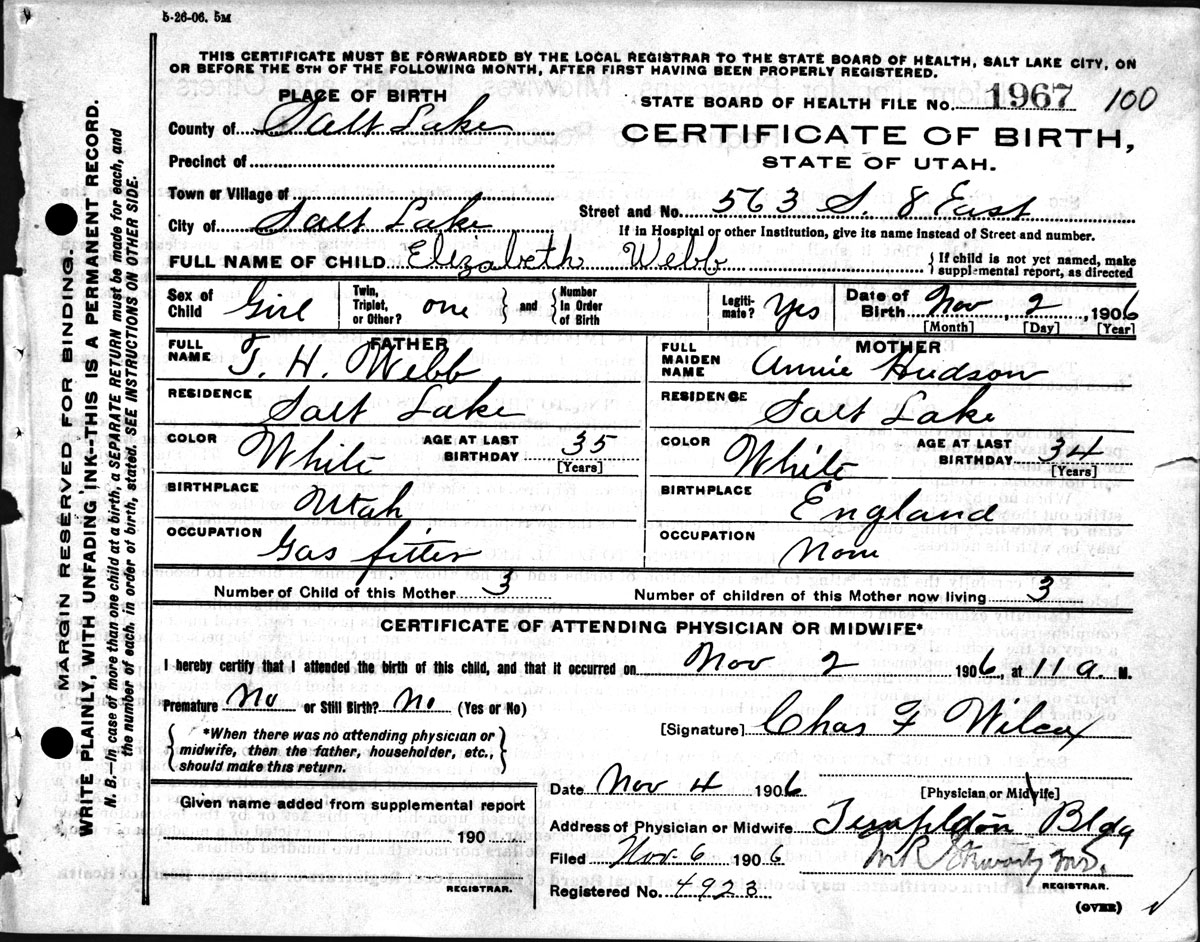 5-26-06. 5M
THIS CERTIFICATE MUST BE FORWARDED BY THE LOCAL REGISTRAR TO THE STATE BOARD OF HEALTH, SALT LAKE CITY, ON
OR BEFORE THE 5TH OF THE FOLLOWING MONTH, AFTER FIRST HAVING BEEN PROPERLY REGISTERED.
PLACE OF BIRTH
STATE BOARD OF HEALTH FILE No. 1967 100
County of Salt Lake
CERTIFICATE OF BIRTH,
STATE OF UTAH.
Precinct of
Town or Village of
Street and No. 563 S. 8 East
City of Salt Lake
If in Hospital or other Institution, give its name instead of Street and number.
FULL NAME OF CHILD Elizabeth Webb { If child is not yet named, make
supplemental report, as directed
Sex of Child Girl
Twin, Triplet, or Other? one } and { Number In Order of Birth
Legiti-mate? Yes
Date of Birth Nov 2, 1906
[Month] [Day] [Year]
FATHER
FULL NAME T. H. Webb
RESIDENCE Salt Lake
COLOR White AGE AT LAST BIRTHDAY 35
[Years]
BIRTHPLACE Utah
OCCUPATION Gas fitter
MOTHER
FULL MAIDEN NAME Annie Hudson
RESIDENCE Salt Lake
COLOR White AGE AT LAST BIRTHDAY 34
[Years]
BIRTHPLACE England
OCCUPATION None
Number of Child of this Mother 3 Number of children of this Mother now living 3
CERTIFICATE OF ATTENDING PHYSICIAN OR MIDWIFE*
I hereby certify that I attended the birth of this child, and that it occurred on Nov 2 1906, at 11 a. M.
Premature No or Still Birth? No (Yes or No)
*When there was no attending physician or
midwife, then the father, householder, etc.,
should make this return.
[Signature] Chas F Wilcox
[Physician or Midwife]
Given name added from supplemental report
190
REGISTRAR.
Date Nov 4 1906
Address of Physician or Midwife Templeton Bldg
Filed Nov 6 1906
M.D.
REGISTRAR.
Registered No. 4923
(OVER)
MARGIN RESERVED FOR BINDING.
WRITE PLAINLY, WITH UNFADING INK--THIS IS A PERMANENT RECORD.
N. B.—In case of more than one child at a birth, a SEPARATE RETURN must be made for each, and
the number of each, in order of birth, stated. SEE INSTRUCTIONS ON OTHER SIDE.